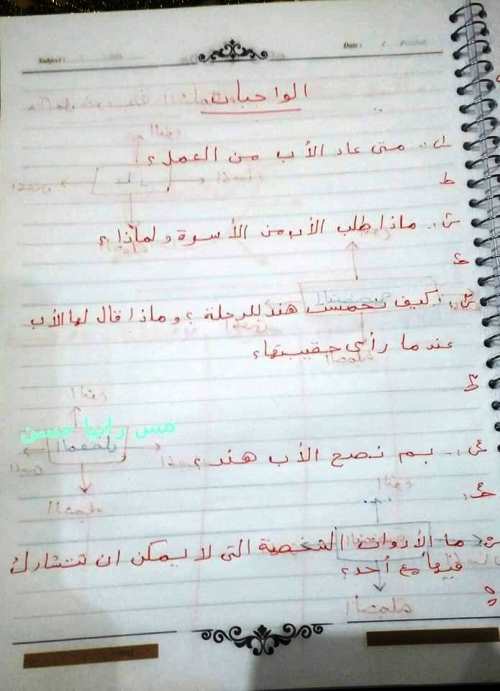 Subject :
Date :
الواجبات
س١: متى عاد الأب من العمل؟
ج
س٢: ماذا طلب الأب من الأسرة ولماذا؟
ج
س٣: كيف تحمست هند للرحلة؟ وماذا قال لها الأب
عندما رأى حقيبتها؟
ج
مس رانيا حسن
س٤: بم نصح الأب هند؟
ج
س٥: ما الأدوات الشخصية التى لا يمكن ان تتشارك
فيها مع أحد؟
ج